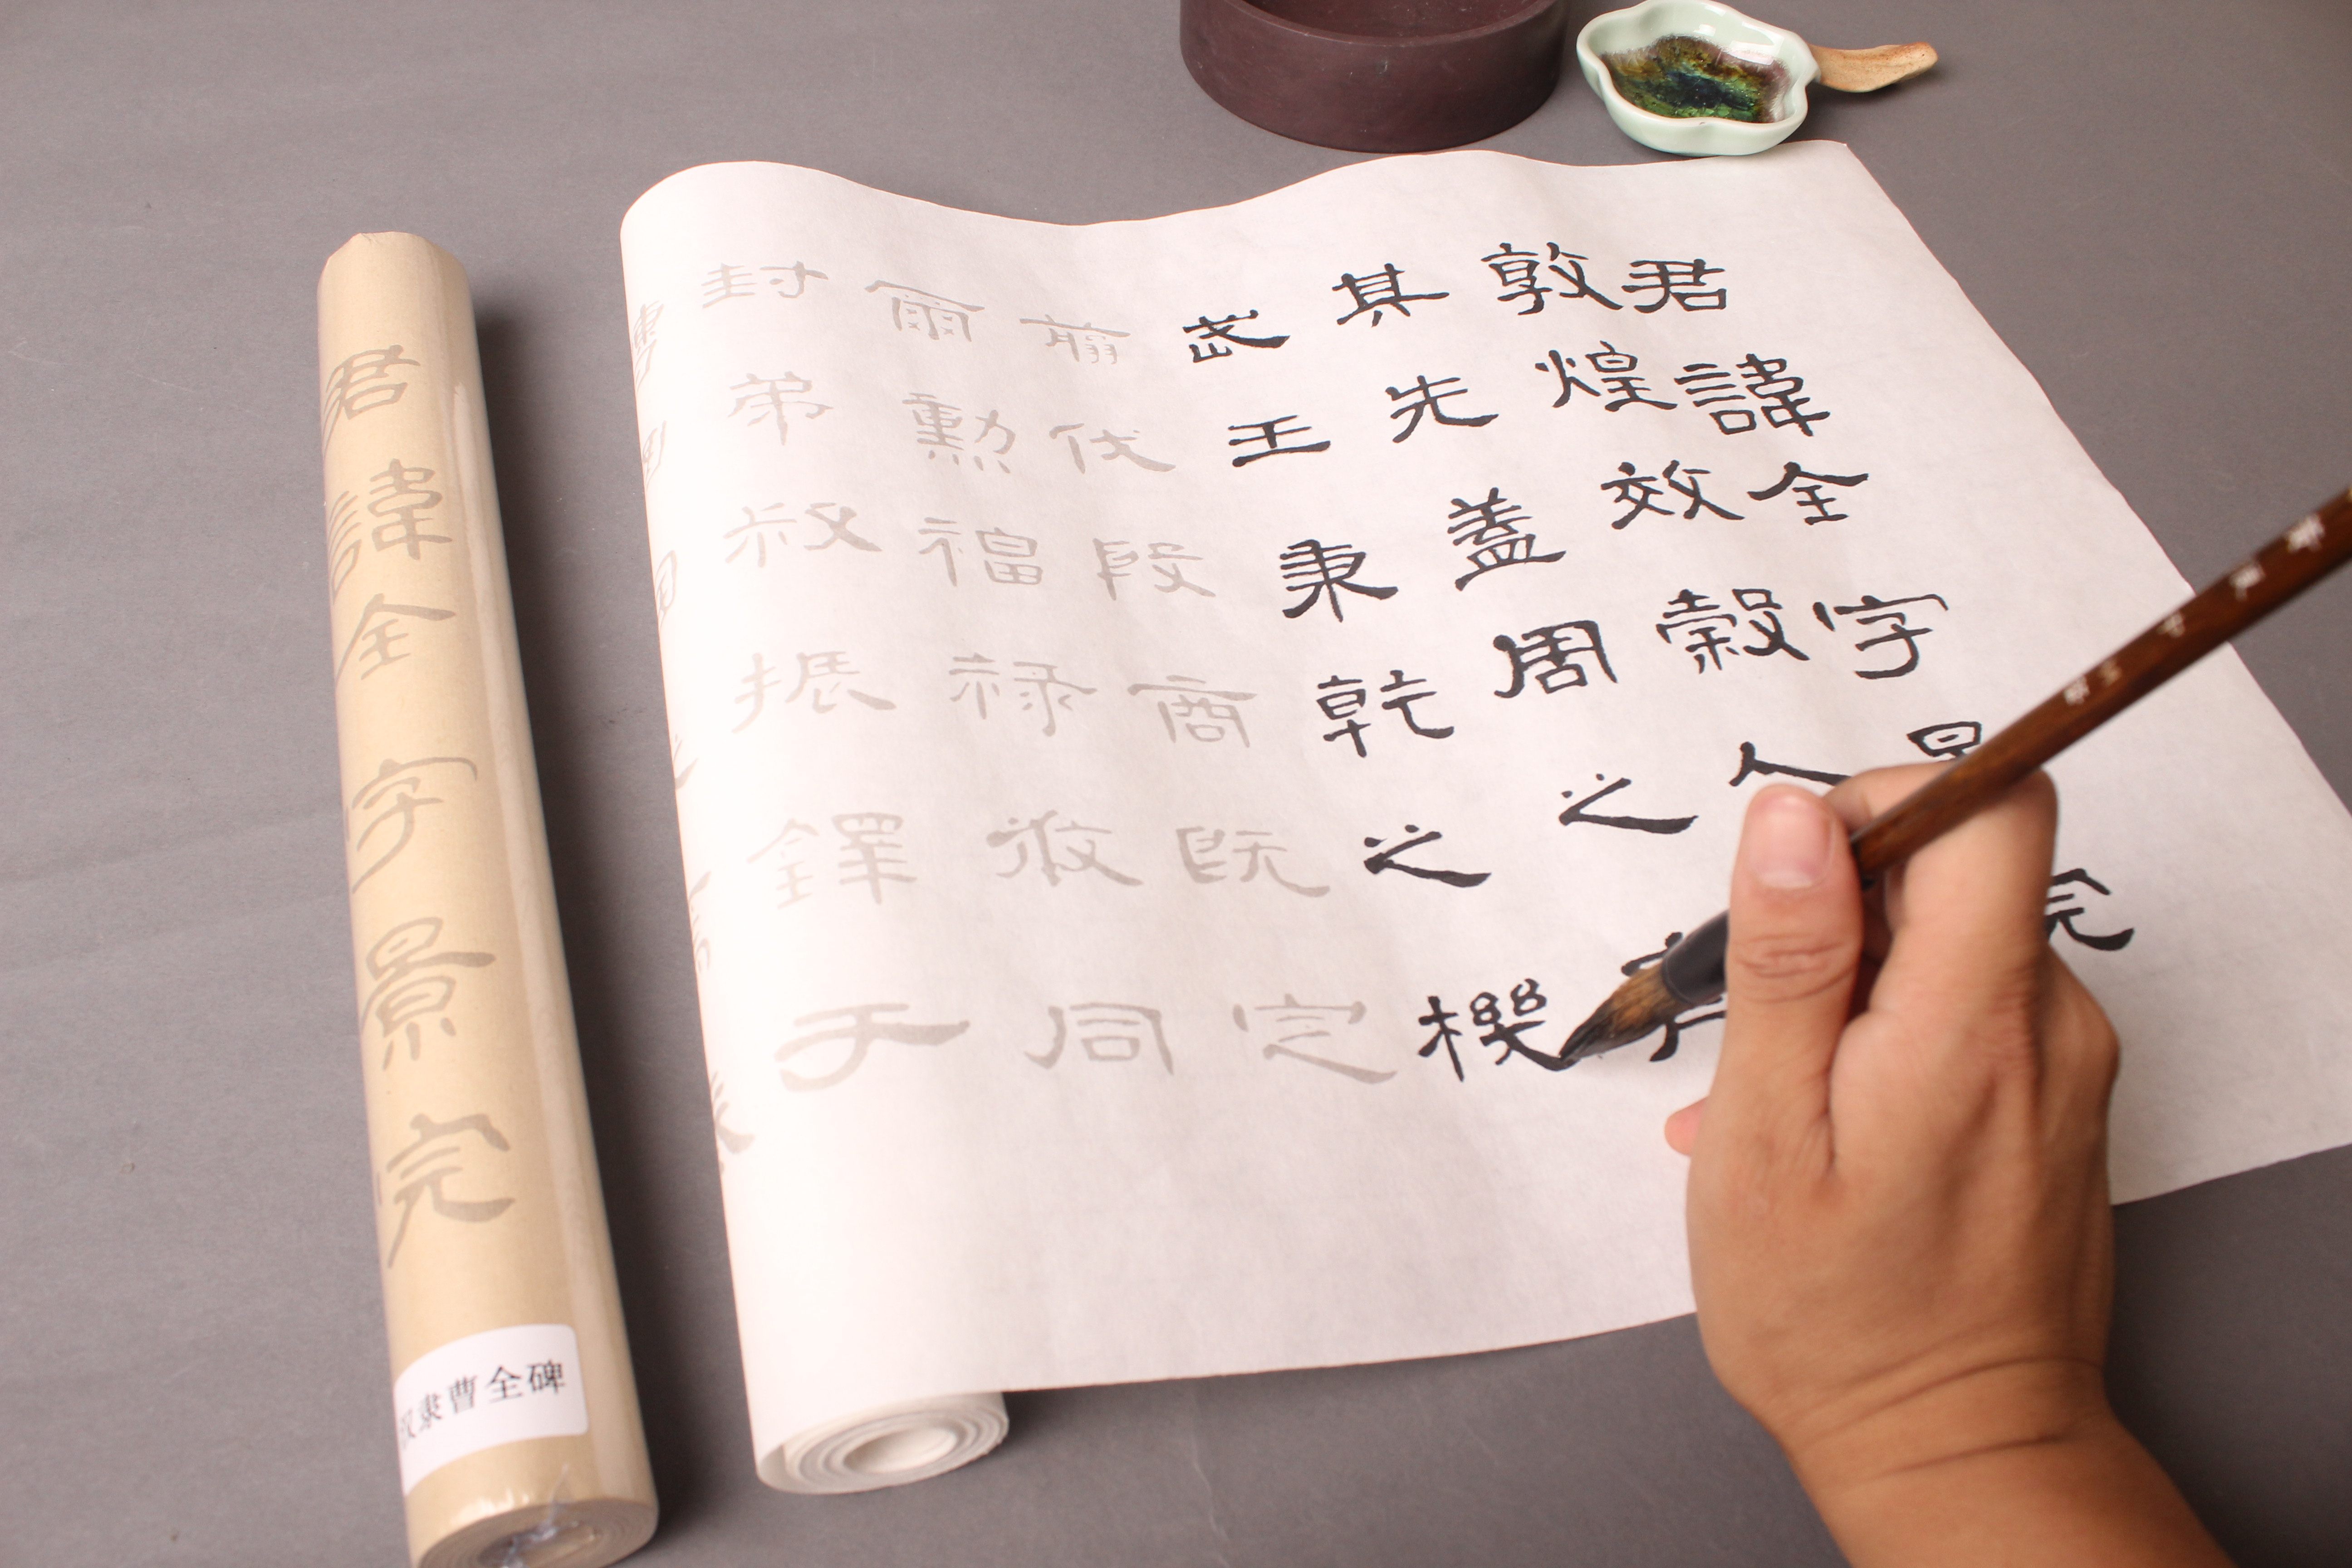 君諱全字景完
敦煌效穀人
其先蓋周之
武王秉乾之機
翦伐殷商既定
爾勳福禄攸同
封弟叔振鐸于
君諱全字景完
汉隶曹全碑